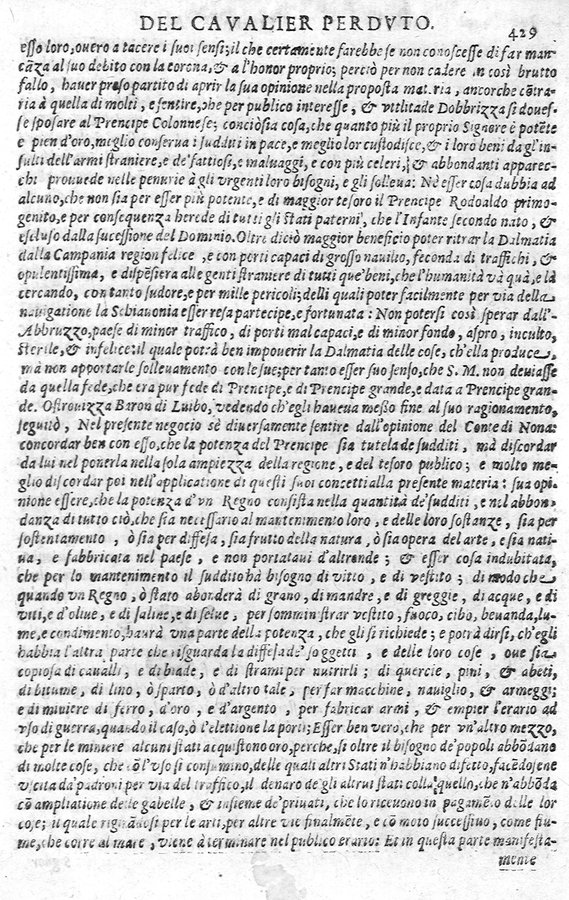 DEL CAVALIER PERDVTO.
429
esso loro, overo a tacere i suoi sensi; il che certamente farebbe se non conoscesse di far man-
cãza al suo debito con la corona, & a l'honor proprio; perciò per non cadere in così brutto
fallo, haver preso partito di aprir la sua opinione nella proposta materia, ancorche cõtra-
ria à quella di molti, e sentire, che per publico interesse, & vtilitade Dobbrizza si douef-
se sposare al Prencipe Colonnese; conciòsia cosa, che quanto più il proprio Signore è potẽte
e pien d'oro, meglio conserua i sudditi in pace, e meglio lor custodisce, & i loro beni da gl'in-
sulti dell'armi straniere, e de'fattiosi, e maluaggi, e con più celeri, & abbondanti apparec-
chi prouuede nelle penurie à gli vrgenti loro bisogni, e gli sollieua: Nè esser cosa dubbia ad
alcuno, che non sia per esser più potente, e di maggior tesoro il Prencipe Rodoaldo primo-
genito, e per consequenza herede di tutti gli Stati paterni, che l'Infante secondo nato, &
escluso dalla successione del Dominio. Oltre diciò maggior beneficio poter ritrar la Dalmatia
dalla Campania region felice, e con porti capaci di grosso nauilio, feconda di traffichi, &
opulentissima, e dispẽsiera alle genti straniere di tutti que'beni, che l'humanità và quà, e là
cercando, con tanto sudore, e per mille pericoli; delli quali poter facilmente per via della
nauigatione la Schiauonia esser resa partecipe, e fortunata: Non potersi così sperar dall'
Abbruzzo, paese di minor traffico, di porti mal capaci, e di minor fondo, aspro, inculto,
sterile, & infelice: il quale potrà ben impouerir la Dalmatia delle cose, ch'ella produce,
mà non apportarle solleuamento con le sue; per tanto esser suo senso, che S. M. non deuiasse
da quella fede, che era pur fede di Prencipe, e di Prencipe grande, e data a Prencipe gran-
de. Ostrouizza Baron di Luibo, vedendo ch'egli haueua messo fine al suo ragionamento,
seguitò, Nel presente negocio sè diuersamente sentire dall'opinione del Conte di Nona:
concordar ben con esso, che la potenza del Prencipe sia tutela de sudditi, mà discordar
da lui nel ponerla nella sola ampiezza della regione, e del tesoro publico; e molto me-
glio discordar poi nell'applicatione di questi suoi concetti alla presente materia: sua opi-
nione essere, che la potenza d'vn Regno consista nella quantità de'sudditi, e nel abbon-
danza di tutto ciò, che sia necessario al mantenimento loro, e delle loro sostanze, sia per
sostentamento, ò sia per diffesa, sia frutto della natura, ò sia opera del arte, e sia nati-
ua, e fabbricata nel paese, e non portataui d'altronde; & esser cosa indubitata,
che per lo mantenimento il suddito hà bisogno di vitto, e di vestito; di modo che
quando vn Regno, ò stato abonderà di grano, di mandre, e di greggie, di acque, e di
viti, e d'oliue, e di saline, e di selue, per somministrar vestito, fuoco, cibo, beuanda, lu-
me, e condimento, haurà vna parte della potenza, che gli si richiede; e potrà dirsi, ch'egli
habbia l'altra parte che risguarda la diffesa de' soggetti, e delle loro cose, oue sia
copiosa di caualli, e di biade, e di strami per nutrirli; di quercie, pini, & abeti,
di bitume, di lino, ò sparto, ò d'altro tale, per far macchine, nauiglio, & armeggi;
e di miniere di ferro, d'oro, e d'argento, per fabricar armi, & empier l'erario ad
vso di guerra, quando il caso, ò l'elettione la porti; Esser ben vero, che per vn'altro mezzo,
che per le miniere alcuni stati acquistono oro, perche, si oltre il bisogno de'popoli abbõdano
di molte cose, che cõ l'vso si consumino, delle quali altri Stati n'habbiano difetto, facẽdosene
vscita da' padroni per via del traffico, il denaro de gli altrui stati colla quello, che n'abbõda
cõ ampliatione delle gabelle, & insieme de'priuati, che lo riceuono in pagamẽto delle lor
cose; il quale rigirãdosi per le arti, per altre vie finalmẽte, e cõ moto successiuo, come fiu-
me, che corre al mare, viene à terminare nel publico erario: Et in questa parte manifesta-
mente